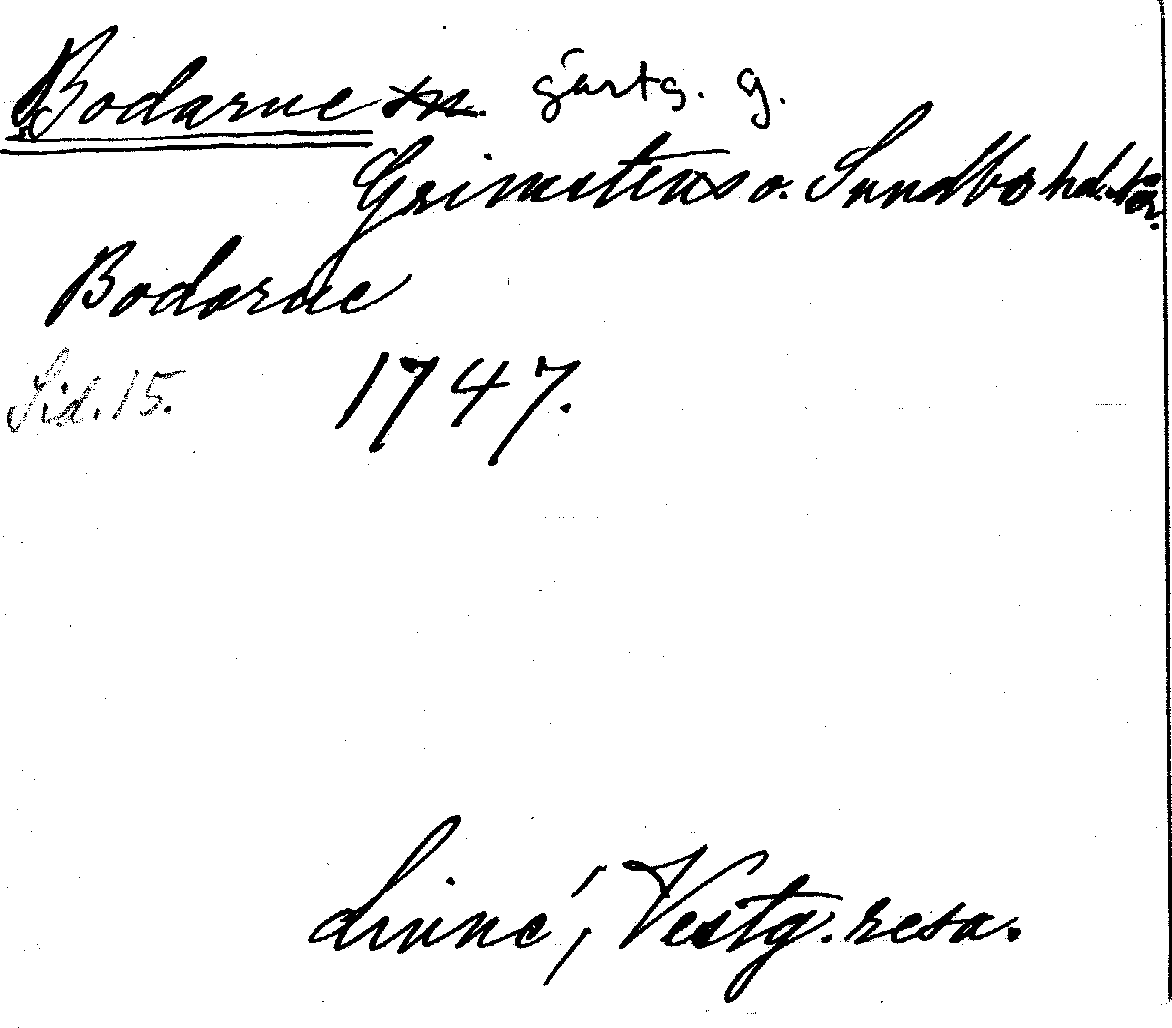 Bodarne gästg. g.
Grimstens o. Sundbo hd.
Bodarne
Sid. 15. 1747.
Linné, Vestg. resa.